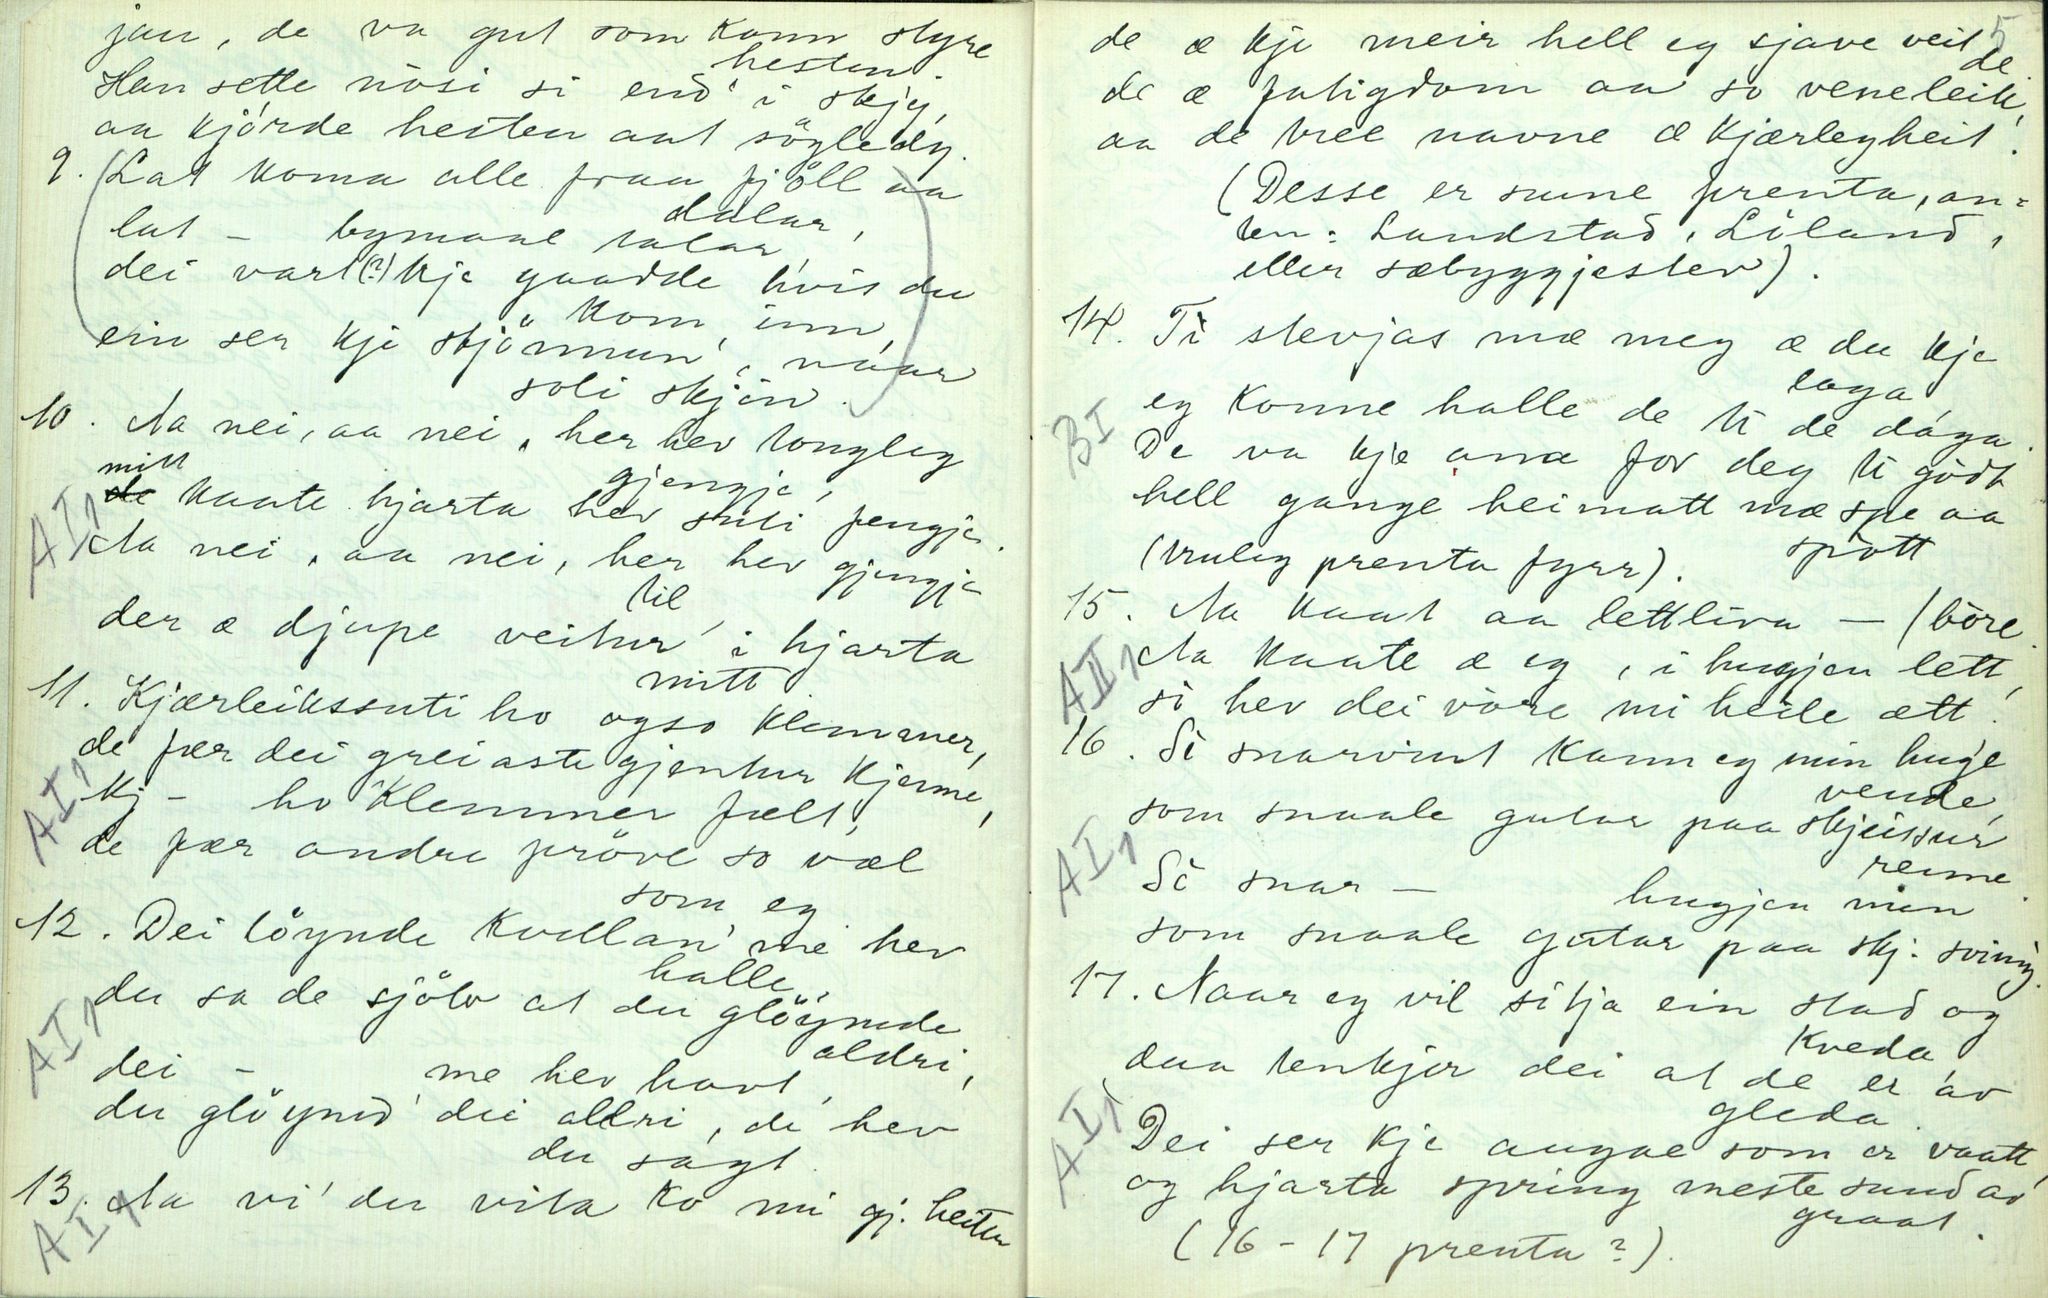 jau, de va gut som kann styre
hesten.
Han sette nósi si end' i skjy,
aa kjórde hesten aat sögledy.
9. (Lat koma alle fraa fjöll aa
dalar,
lat – bymaal talar,
dei vart(?) kje gaadde hvis du
kom inn,
ein ser kje stjönnun', náar
soli skjin.)
10. Aa nei, aa nei, her hev tongleg
gjengje,
mitt
kaate hjarta hev suti fengje.
AI,1
Aa nei, aa nei, her hev gjengje
til
der æ djupe veitur i hjarta
mitt.
11. Kjærleikssuti ho ogso klemmer,
de fær dei greiaste gjentur kjenne,
AI,1
Kj – ho klemmer fælt,
de fær andre pröve so væl
som eg
12. Dei löynde kvellan' me hev
halle,
du sa de sjölv at du glöymde
aldri,
AI,1
dei – me hev havt,
du glöymd' dei alldri, de hev
du sagt.
13. Aa vi' du vita ko mi gj. heiter
AI,1
5
de æ kje meir hell eg sjave veit de.
de æ fatigdom aa so veneleik,
aa de tree navne æ kjærlegheit.
(Desse er sume prenta, an-
ten: Landstad, Löland,
eller sæbyggjestev).
14. Ti stevjas mæ meg æ du kje
laga
BI
eg konne halle de ti de dága.
De va kje anna for deg ti godt
hell gange heimatt mæ spe aa
spott
(truleg prenta fyrr).
15. Aa kaat aa lettliva – (böre.
AII,1
Aa kaate æ eg, i hugjen lett,
si hev dei vóre mi heile ætt.
16. Så snarvint kann eg min huge
vende,
som snaale gutar paa skjeisur
renne.
AI,1
Så snar – hugjen min
som snaale gutar paa skj. sviing.
17. Naar eg vil sitja ein stad og
kveda
daa tenkjer dei at de er av
gleda.
AI,1
Dei ser kje augae som er vaatt,
og hjarta spring meste sund av
graat.
(16–17 prenta?).